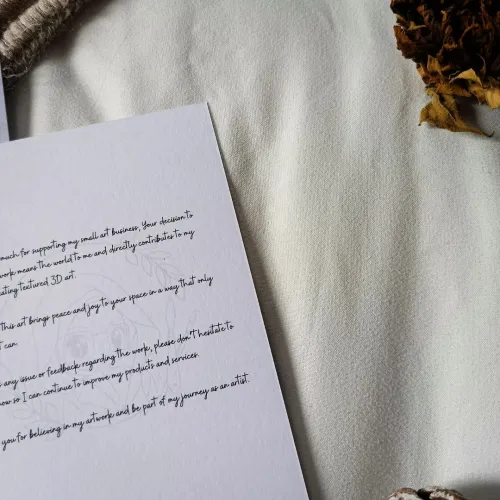 much for supporting my small art business, Your decision to
work means the world to me and directly contributes to my
ating textured 3D art.
this art brings peace and joy to your space in a way that only
t can.
any issue or feedback regarding the work, please don't hesitate to
now so I can continue to improve my products and services.
you for believing in my artwork and be part of my journey as an artist.